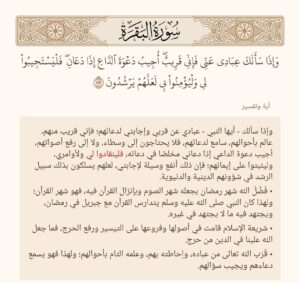 سُورَةُ البَقَرَةِ
وَإِذَا سَأَلَكَ عِبَادِى عَنِّى فَإِنِّى قَرِيبٌ ۖ أُجِيبُ دَعْوَةَ ٱلدَّاعِ إِذَا دَعَانِ ۖ فَلْيَسْتَجِيبُوا۟
لِى وَلْيُؤْمِنُوا۟ بِى لَعَلَّهُمْ يَرْشُدُونَ
آية وتفسير
وإذا سألك - أيها النبي - عبادي عن قربي وإجابتي لدعائهم؛ فإني قريب منهم،
عالم بأحوالهم، سامع لدعائهم، فلا يحتاجون إلى وسطاء، ولا إلى رفع أصواتهم،
أجيب دعوة الداعي إذا دعاني مخلصًا في دعائه، فلينقادوا لي ولأوامري،
وليثبتوا على إيمانهم؛ فإن ذلك أنفع وسيلة لإجابتي، لعلهم يسلكون بذلك سبيل
الرشد في شؤونهم الدينية والدنيوية.
• فضَّل الله شهر رمضان بجعله شهر الصوم وبإنزال القرآن فيه، فهو شهر القرآن؛
ولهذا كان النبي صلى الله عليه وسلم يتدارس القرآن مع جبريل في رمضان،
ويجتهد فيه ما لا يجتهد في غيره.
• شريعة الإسلام قامت في أصولها وفروعها على التيسير ورفع الحرج، فما جعل
الله علينا في الدين من حرج.
• قُرْب الله تعالى من عباده، وإحاطته بهم، وعلمه التام بأحوالهم؛ ولهذا فهو يسمع
دعاءهم ويجيب سؤالهم.